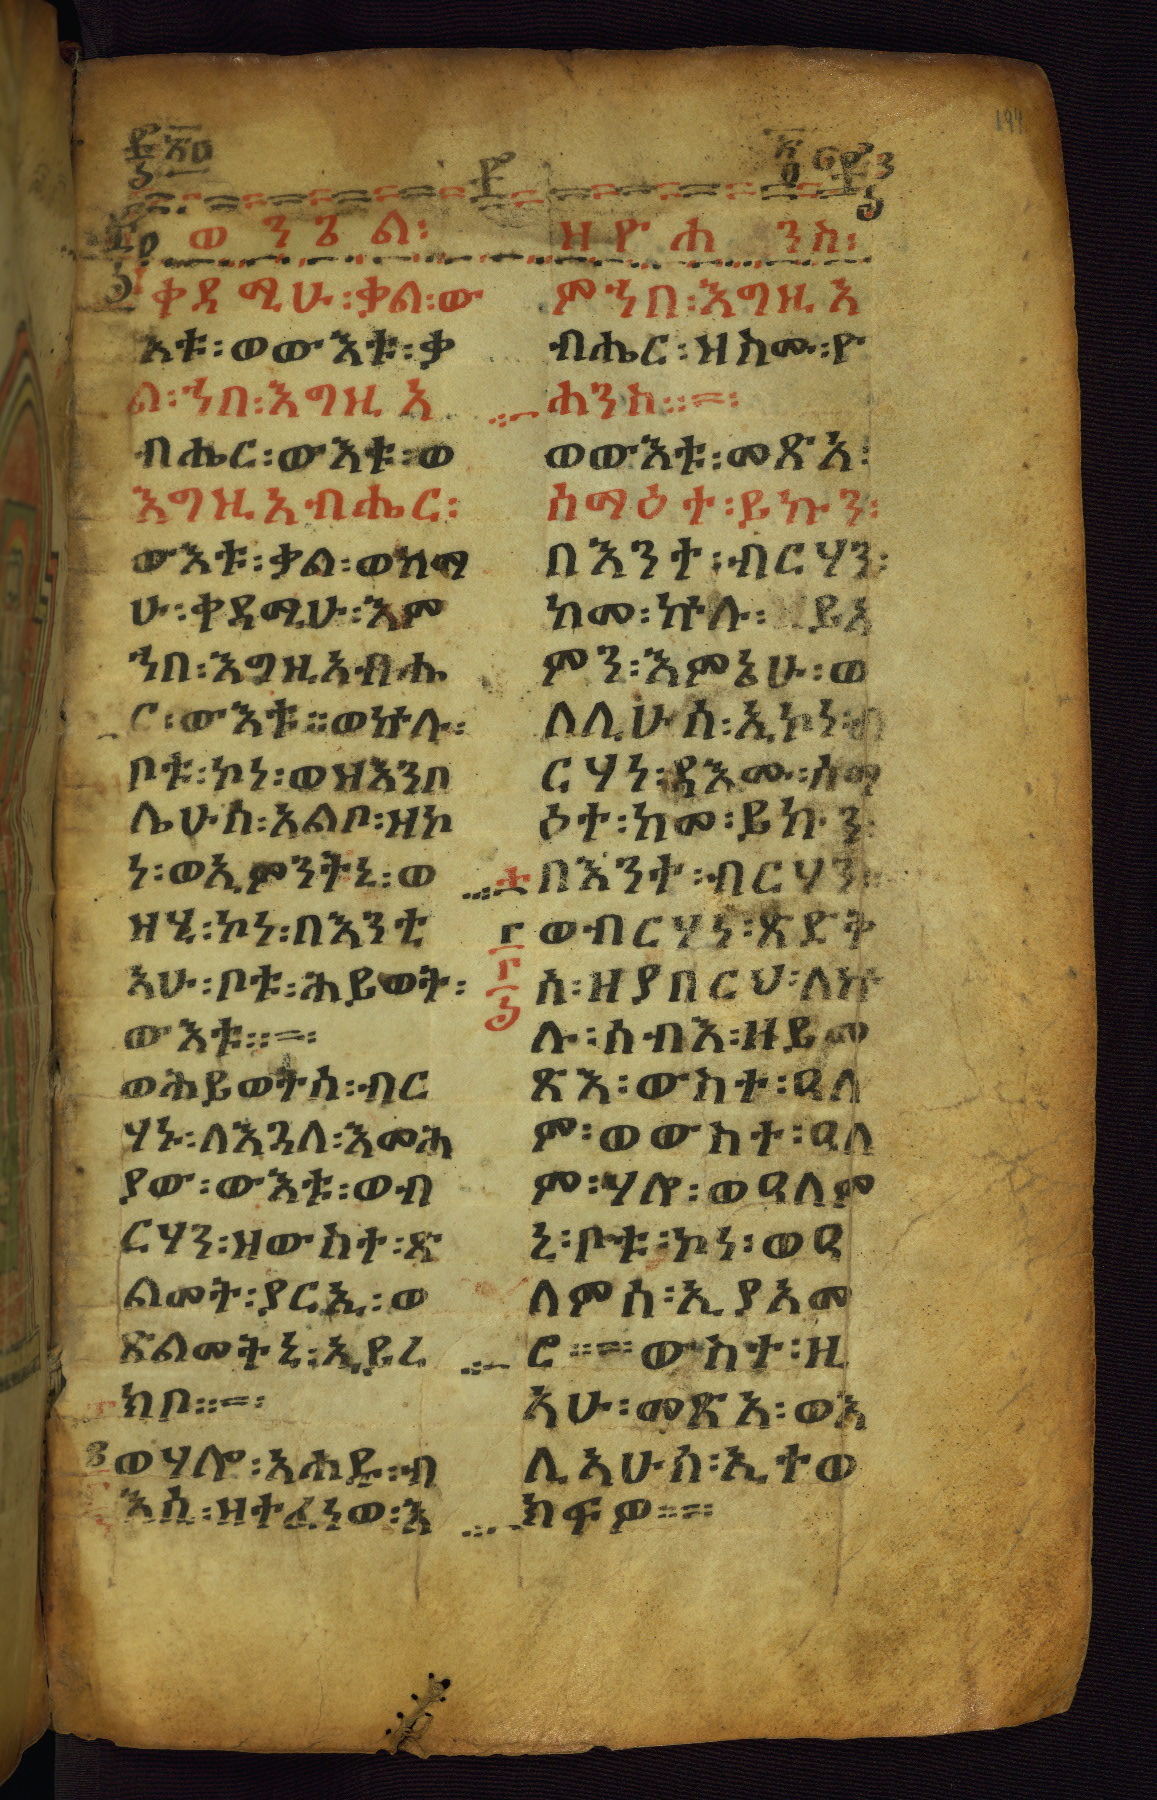 ወንጌል፡ ዘዮሐንስ፡
ቀዳሚሁ፡ቃል፡ው
እቱ፡ወውእቱ፡ቃ
ል፡ኀበ፡እግዚአ
ብሔር፡ውእቱ፡ወ
እግዚአብሔር፡
ውእቱ፡ቃል፡ወከማ
ሁ፡ቀዳሚሁ፡እም
ኀበ፡እግዚአብሔ
ር፡ውእቱ።ወኵሉ፡
ቦቱ፡ኮነ፡ወዝእንበ
ሌሁሰ፡አልቦ፡ዘኮ
ነ፡ወኢምንትኒ፡ወ
ዘሂ፡ኮነ፡በእንቲ
አሁ፡ቦቱ፡ሕይወት፡
ውእቱ።=፡
ወሕይወትሰ፡ብር
ሃኑ፡ለእጓለ፡እመሕ
ያው፡ውእቱ፡ወብ
ርሃን፡ዘውስተ፡ጽ
ልመት፡ያርኢ፡ወ
ጽልመትኒ፡ኢይረ
ክቦ።=፡
ወሃሎ፡አሐዱ፡ብ
እሲ፡ዘተፈነወ፡እ
ምኀበ፡እግዚአ
ብሔር፡ዝስሙ፡ዮ
ሐንስ።=፡
ወውእቱ፡መጽአ፡
ስማዕተ፡ይኩን፡
በእንተ፡ብርሃን፡
ከመ፡ኵሉ፡ ይአ
ምን፡እምኔሁ፡ወ
ለሊሁሰ፡ኢኮነ፡ብ
ርሃነ፡ዳእሙ፡ስማ
ዕተ፡ከመ፡ይኩን፡
በእንተ፡ብርሃን።
ወብርሃነ፡ጽድቅ
ሰ፡ዘያበርህ፡ለኵ
ሉ፡ሰብእ፡ዘይመ
ጽእ፡ውስተ፡ዓለ
ም፡ወውስተ፡ዓለ
ም፡ሃሎ፡ወዓለም
ኒ፡ቦቱ፡ኮነ፡ወዓ
ለምሰ፡ኢያአመ
ሮ።=፡ውስተ፡ዚ
አሁ፡መጽአ፡ወእ
ሊአሁሰ፡ኢተወ
ክፍዎ።=፡